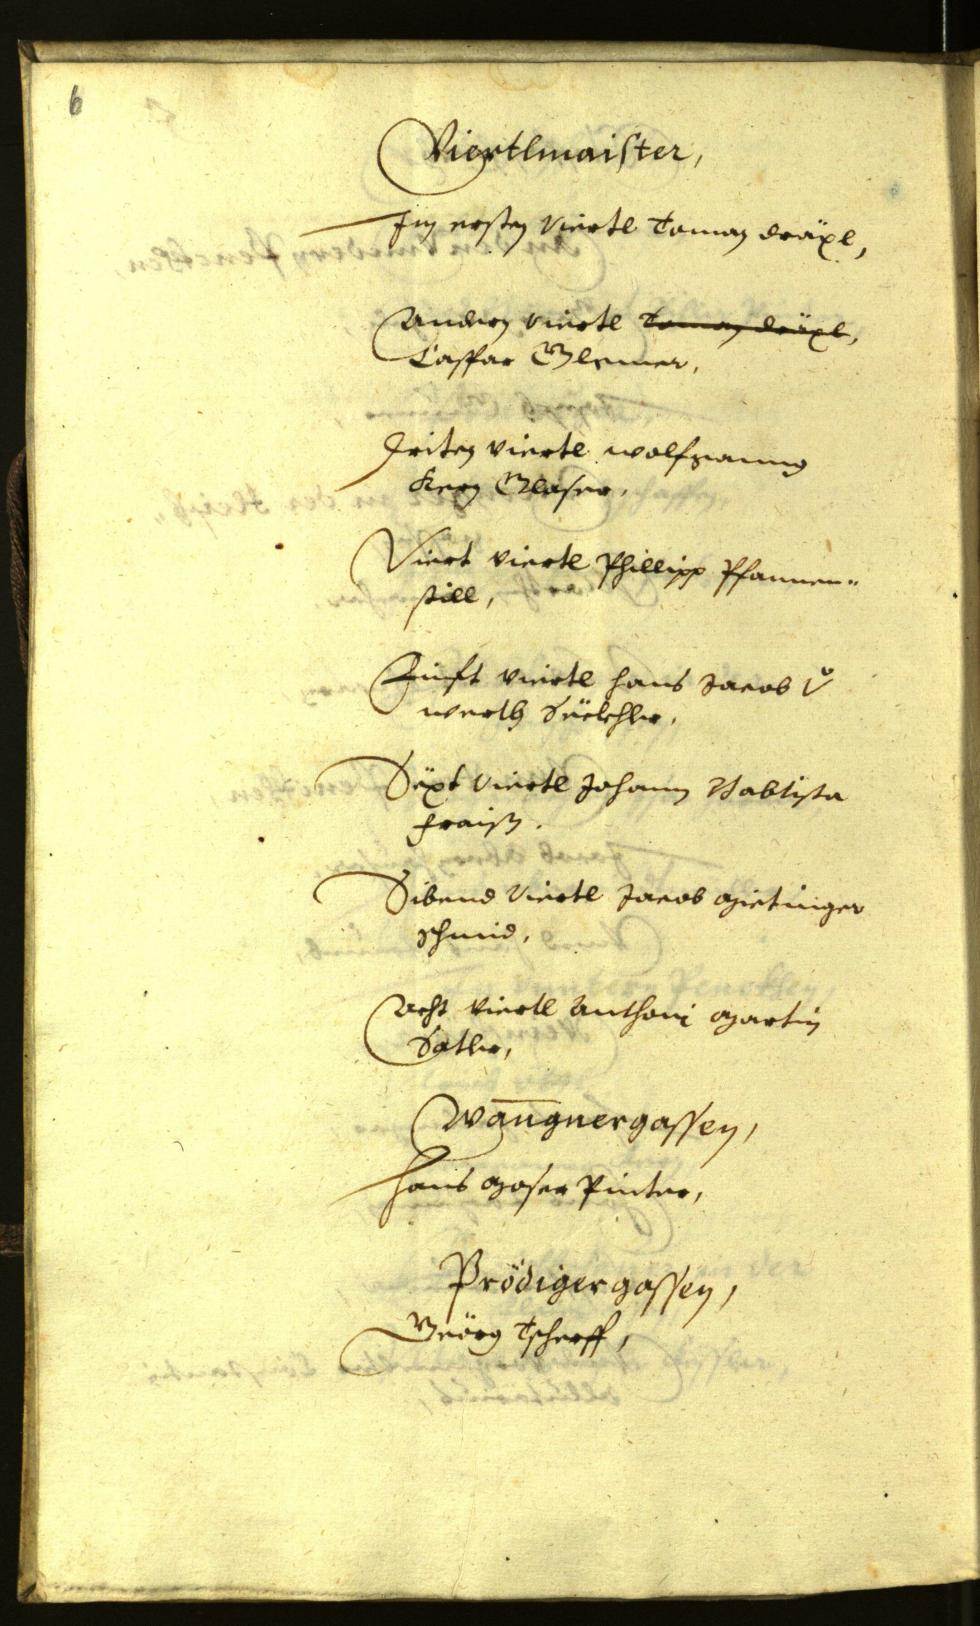 6
Viertlmaister,
Im ersten Viertl Toman dräxl,
Andern viertl Toman dräxl,
Casspar
driten viertl wolfganng
Kern Glaser,
Viert viertl Phillipp Pfannen=
still,
Finfft viertl Hans Jacob
werth
Sext viertl Johann Babtista
Fraiß.
Sibend Viertl Jacob Mietinger
Schmid,
Acht viertl Anthoni Martin
Satler,
Wangnergassen,
Hans Moser Pinter,
Prödigergassen,
Geörg Tscherff,